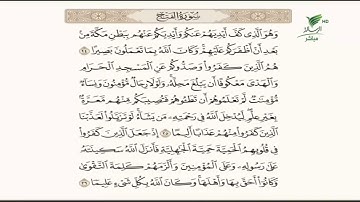 سُورَةُ الفَتْحِ
HD
مباشر
وَهُوَ الَّذِي كَفَّ أَيْدِيَهُمْ عَنكُمْ وَأَيْدِيَكُمْ عَنْهُم بِبَطْنِ مَكَّةَ مِنْ
بَعْدِ أَنْ أَظْفَرَكُمْ عَلَيْهِمْ وَكَانَ اللَّهُ بِمَا تَعْمَلُونَ بَصِيرًا ٢٤
هُمُ الَّذِينَ كَفَرُوا وَصَدُّوكُمْ عَنِ الْمَسْجِدِ الْحَرَامِ
وَالْهَدْيَ مَعْكُوفًا أَن يَبْلُغَ مَحِلَّهُ وَلَوْلَا رِجَالٌ مُّؤْمِنُونَ وَنِسَاءٌ
مُّؤْمِنَاتٌ لَّمْ تَعْلَمُوهُمْ أَن تَطَئُوهُمْ فَتُصِيبَكُم مِّنْهُم مَّعَرَّةٌ
بِغَيْرِ عِلْمٍ لِّيُدْخِلَ اللَّهُ فِي رَحْمَتِهِ مَن يَشَاءُ لَوْ تَزَيَّلُوا لَعَذَّبْنَا
الَّذِينَ كَفَرُوا مِنْهُمْ عَذَابًا أَلِيمًا ٢٥ إِذْ جَعَلَ الَّذِينَ كَفَرُوا
فِي قُلُوبِهِمُ الْحَمِيَّةَ حَمِيَّةَ الْجَاهِلِيَّةِ فَأَنزَلَ اللَّهُ سَكِينَتَهُ
عَلَى رَسُولِهِ وَعَلَى الْمُؤْمِنِينَ وَأَلْزَمَهُمْ كَلِمَةَ التَّقْوَى
وَكَانُوا أَحَقَّ بِهَا وَأَهْلَهَا وَكَانَ اللَّهُ بِكُلِّ شَيْءٍ عَلِيمًا ٢٦